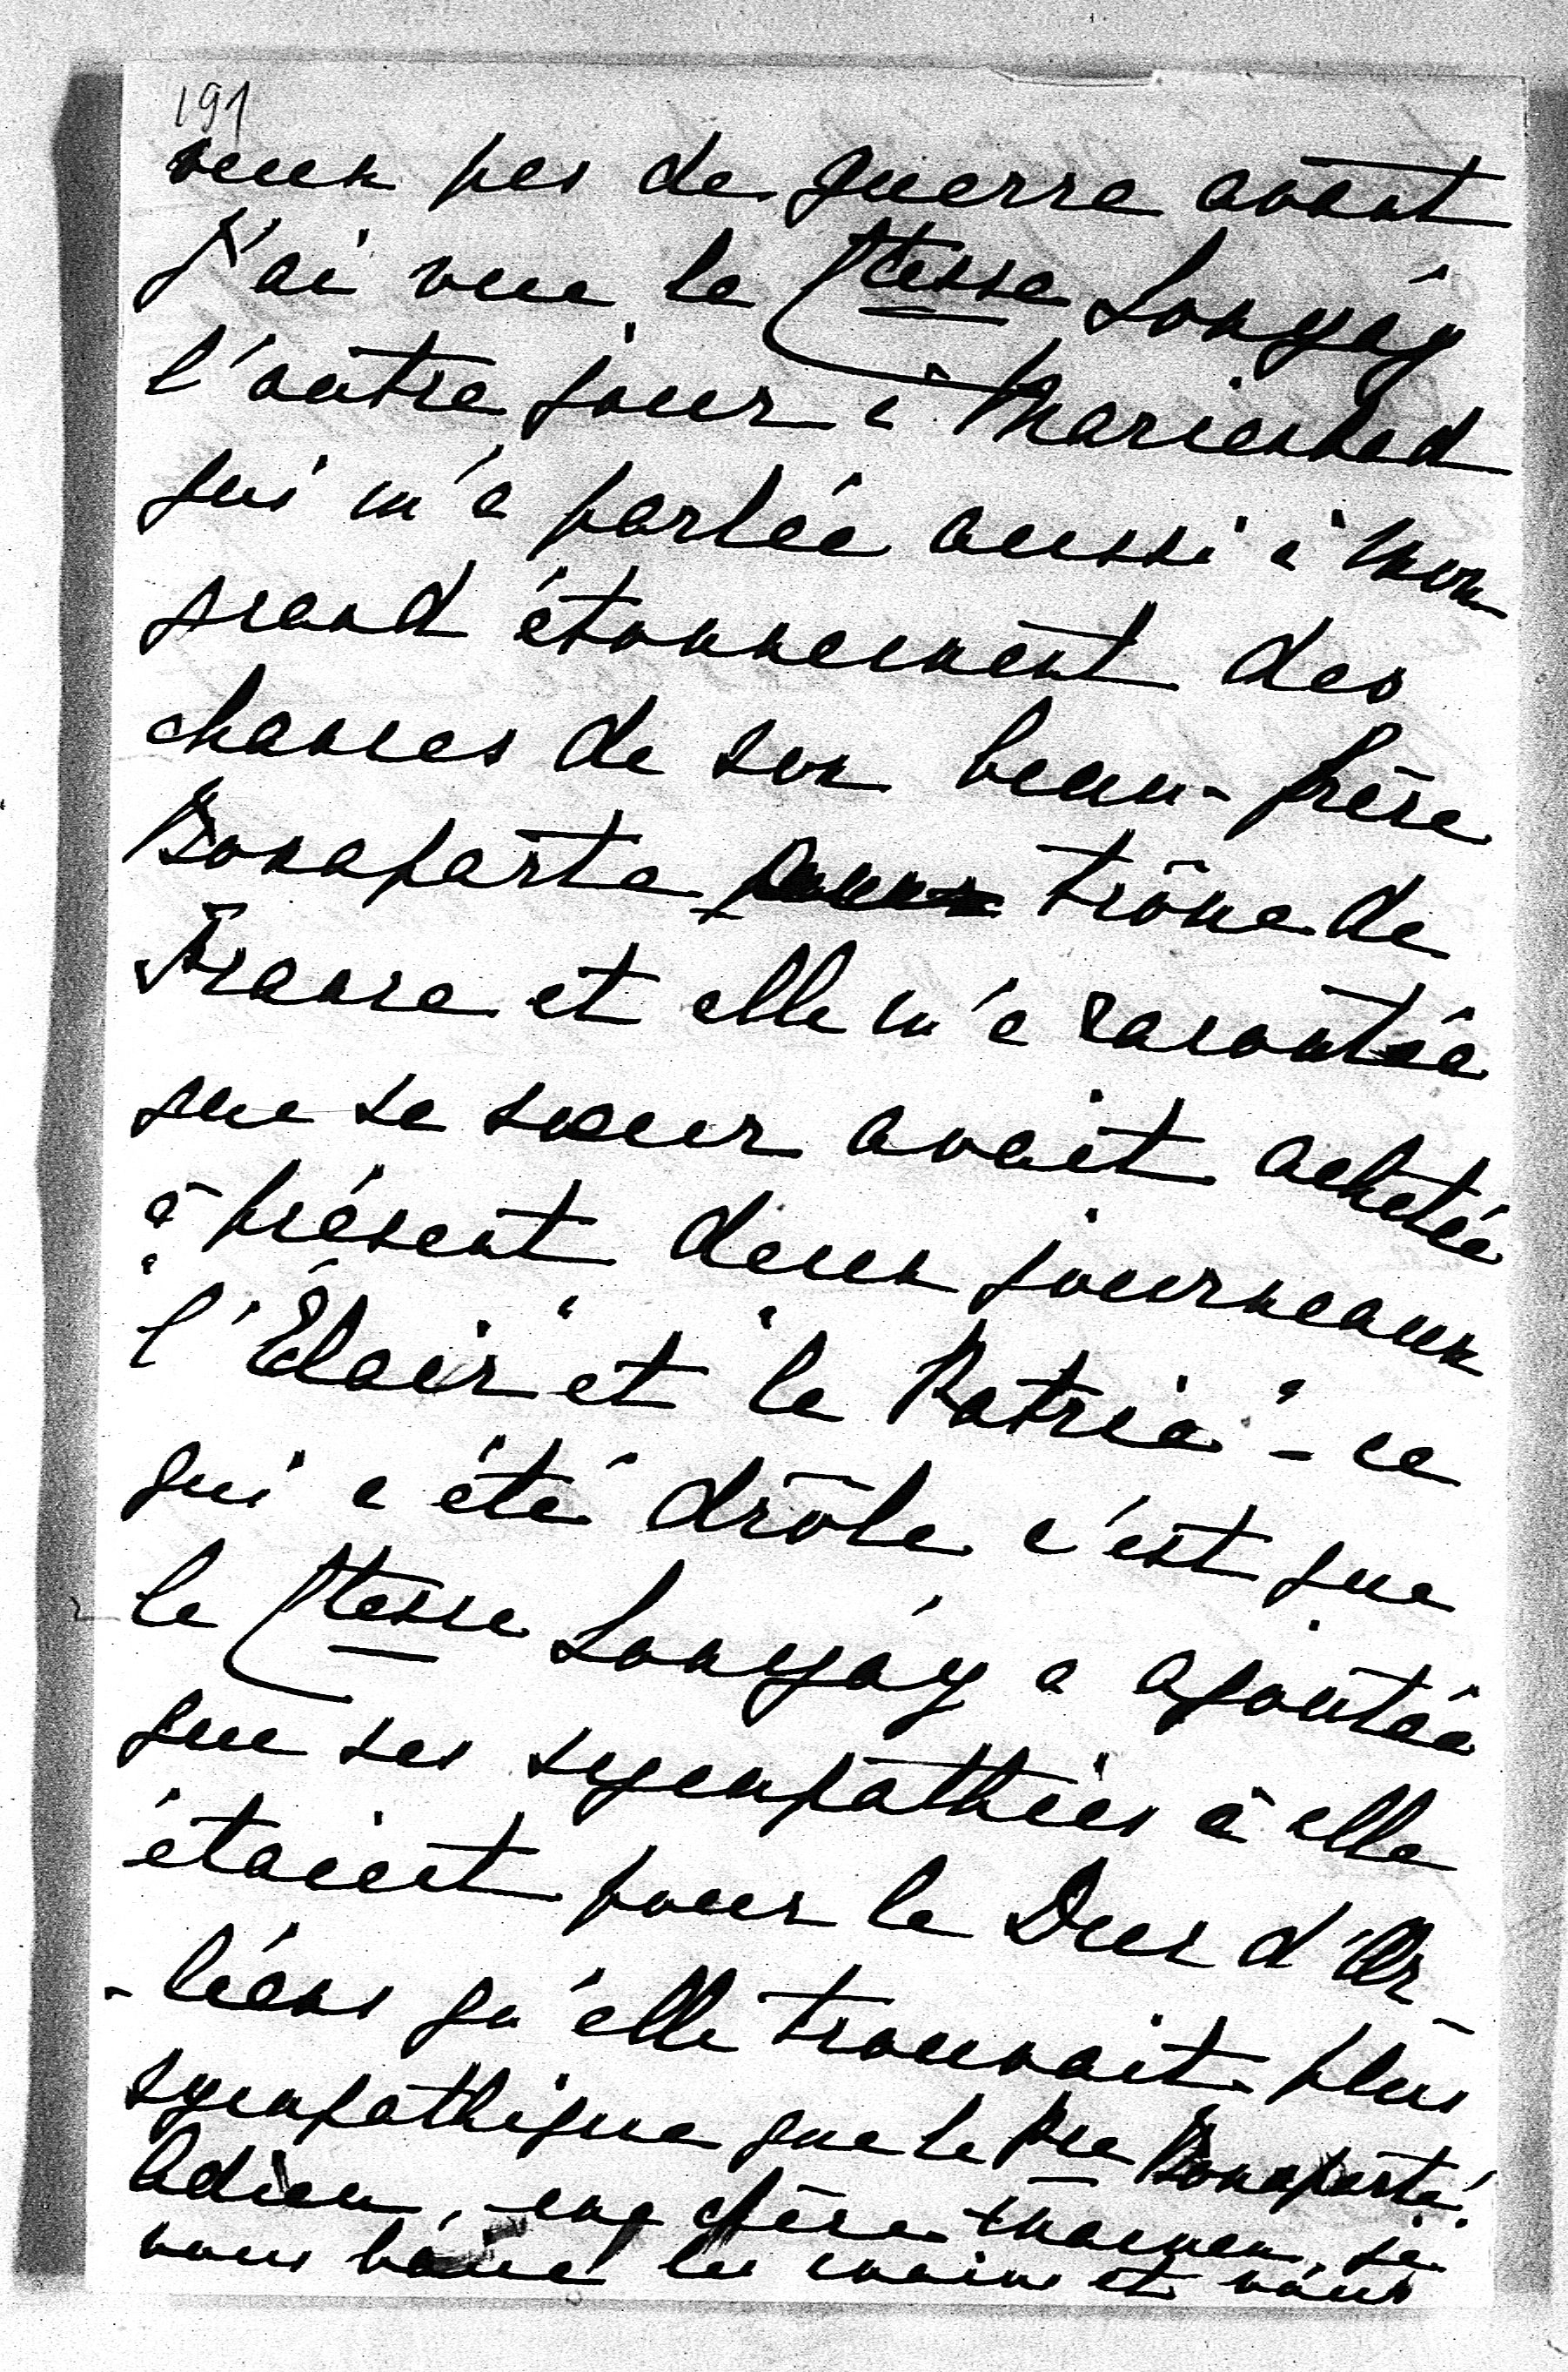 191
veux pas de guerre avant
j'ai vue la Ctesse Lonyáy
l'autre jour à Marienbad
qui m'a parlée aussi à mon
grand étonnement des
chances de son beau-frère
Bonaparte trône de
France et elle m'a racontée
que sa sœur avait achetée
à présent deux journeaux
l'"Éclair" et la "Patrie" - ce
qui a été drôle c'est que
la Ctesse Lonyáy a ajoutée
que ses sympathies à elle
étaient pour le Duc d'Or-
-léans qu'elle trouvait plus
sympathique que le Pce Bonaparte!
Adieu, ma chère maman, je
vous baise les mains et vous